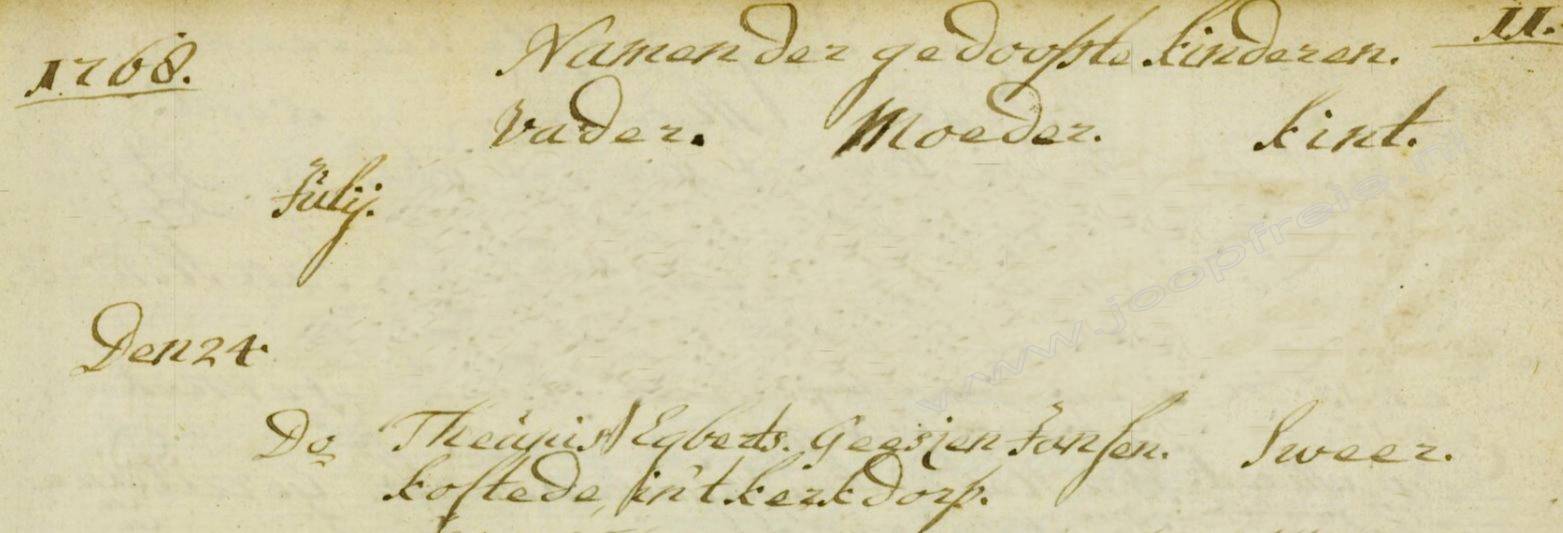 1768. Namen der gedoopte kinderen. 11.
Vader. Moeder. kint.
Julij.
Den 24
Do Theunis Egberts. Geesjen Jansen. Sweer.
kostede, in't kerkdorp.
www.joopfreie.nl